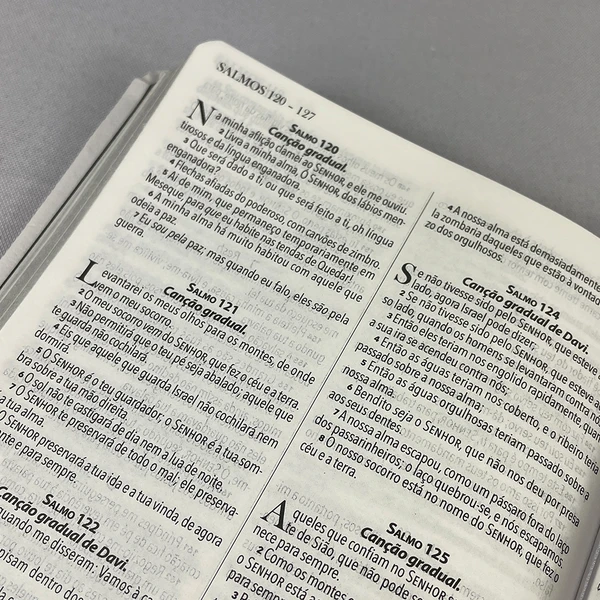 SALMOS 120 - 127
SALMO 120
Canção gradual.
Na minha aflição clamei ao SENHOR, e ele me ouviu.
2 Livra a minha alma, Ó SENHOR, dos lábios men-
tirosos e da língua enganadora.
3 Que será dado a ti, ou que será feito a ti, oh língua
enganadora?
4 Flechas afiadas do poderoso, com carvões de zimbro.
5 Ai de mim, que permaneço temporariamente em
Meseque, para que eu habite nas tendas de Quedar!
6 A minha alma há muito habitou com aquele que
odeia a paz.
7 Eu sou pela paz; mas quando eu falo, eles são pela
guerra.
SALMO 121
Canção gradual.
Levantarei os meus olhos para os montes, de onde
vem o meu socorro.
2 O meu socorro vem do SENHOR, que fez o céu e a terra.
3 Não permitirá que o teu pé seja abalado; aquele que
te guarda não cochilará.
4 Eis que aquele que guarda Israel não cochilará nem
dormirá.
5 O SENHOR é o teu guardador; o SENHOR é a tua som-
bra sobre a tua mão direita.
6 O sol não te castigará de dia nem a lua de noite.
7 O SENHOR te preservará de todo o mal; ele preserva-
a tua alma.
O SENHOR preservará a tua ida e a tua vinda, de agora
e para sempre.
SALMO 122
Canção gradual de Davi.
quando me disseram: Vamos à
dentro dos
4 A nossa alma está demasiadamente
la zombaria daqueles que estão à vontade
zo dos orgulhosos.
SALMO 124
Canção gradual de Davi.
Se não tivesse sido pelo SENHOR, que esteve
lado, agora Israel pode dizer;
2 Se não tivesse sido pelo SENHOR, que esteve
so lado, quando os homens se levantaram contra nós:
3 Então eles teriam nos engolido rapidamente, quando
a sua ira se acendeu contra nós;
4 Então as águas teriam nos coberto, e o ribeiro teria
passado sobre a nossa alma;
5 Então as águas orgulhosas teriam passado sobre a
nossa alma.
6 Bendito seja o SENHOR, que não nos deu por presa
aos seus dentes.
7 A nossa alma escapou, como um pássaro fora do laço
dos passarinheiros; o laço quebrou-se, e nós escapamos.
8 O nosso socorro está no nome do SENHOR, que fez o
céu e a terra.
SALMO 125
Canção gradual.
Aqueles que confiam no SENHOR
te de Sião, que não pode
nece para sempre.
2 Como os montes
o SENHOR está
para sempre.
3 P